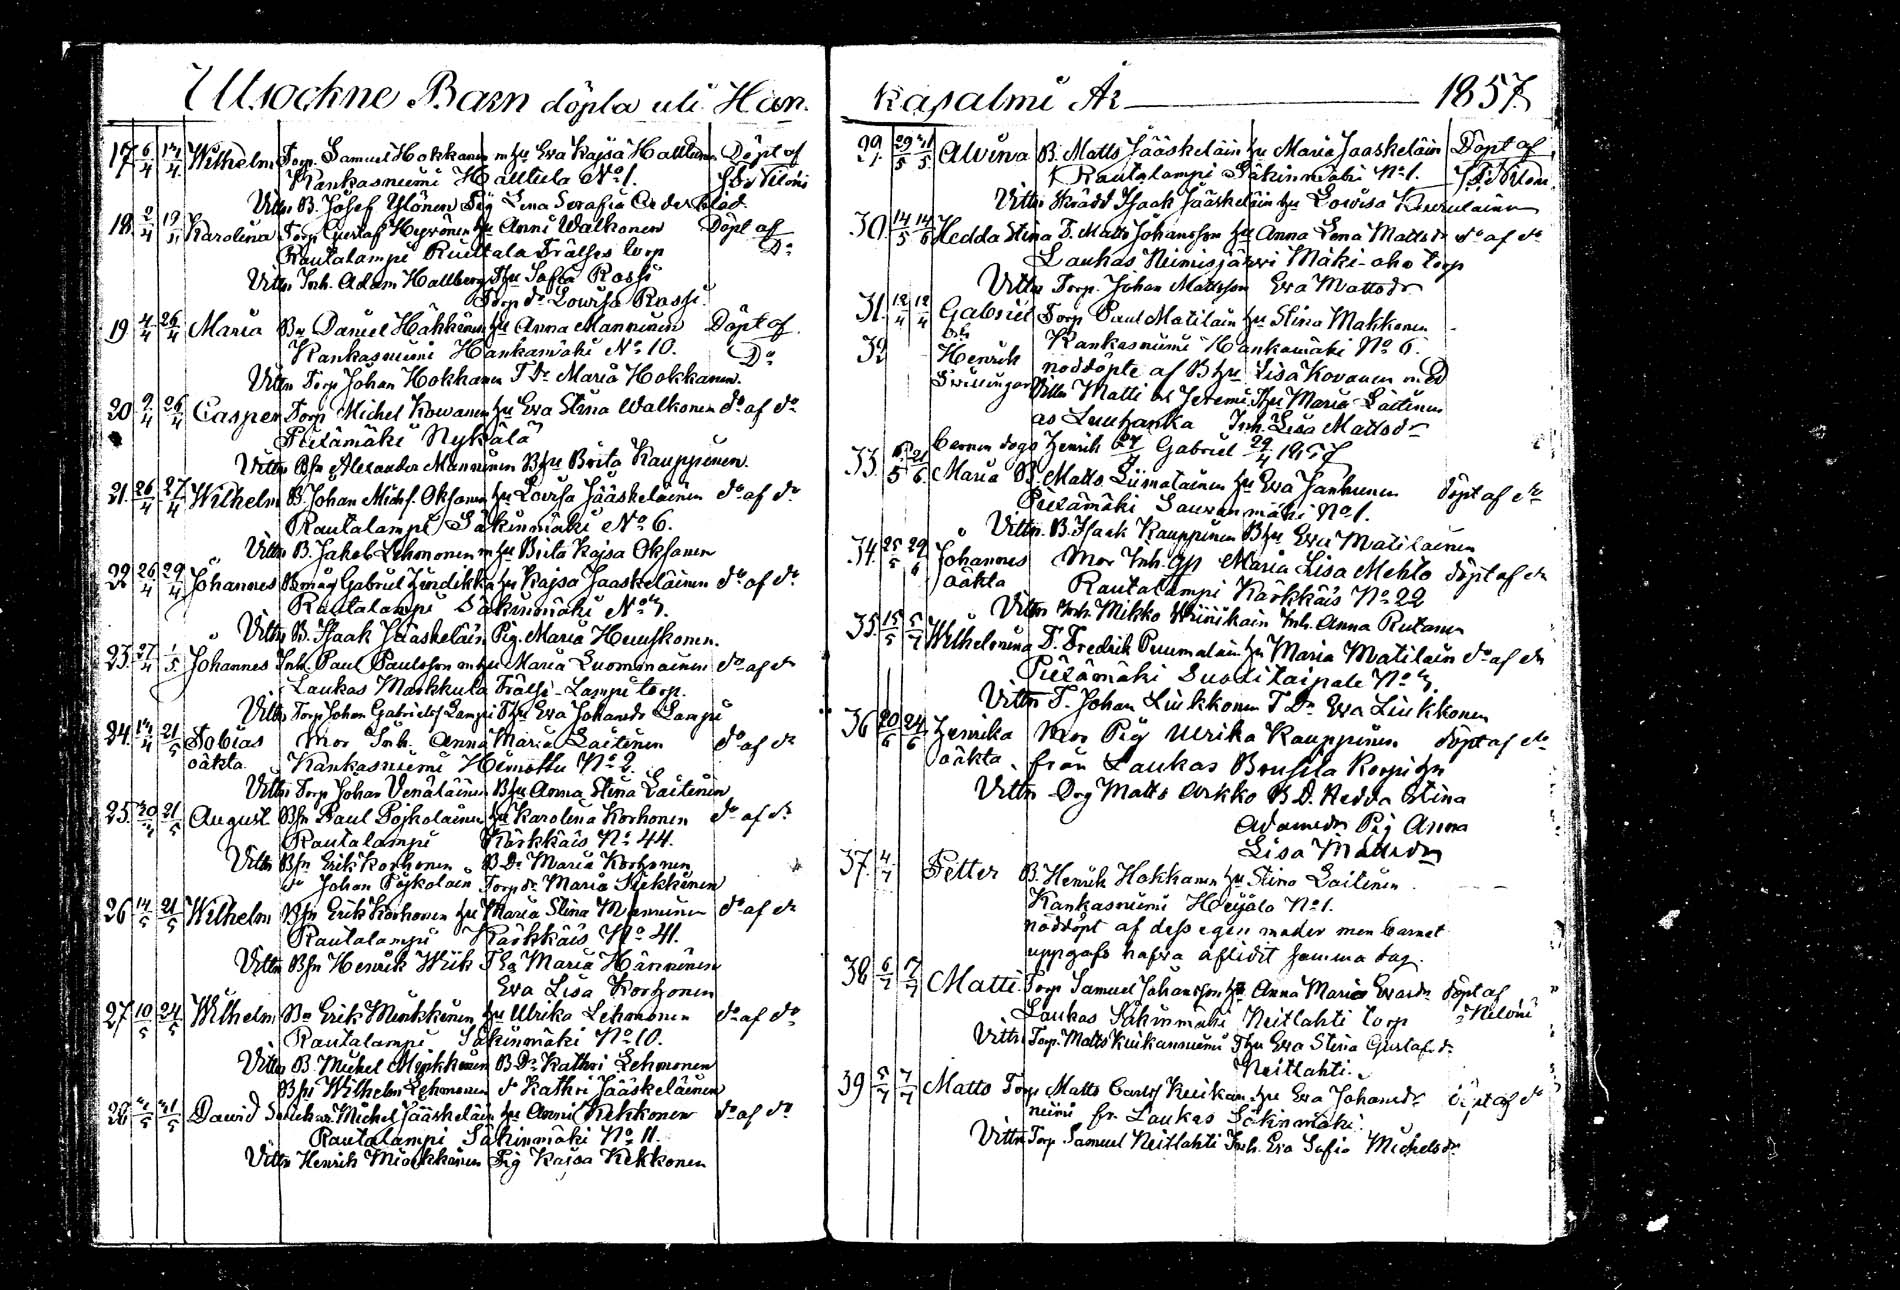 Utsockne Barn döpta uti Han-
17 6/4 14/4 Wilhelm Torp. Samuel Hokkanen m hu Eva Kajsa Döpt af
Kankasniemi Hallula No 1.
Vittn B. Josef Ylönen Pig Lena Serafia Cederblad.
18. 2/4 19/4 Karolina Torp Gustaf hu Anni Walkonen Döpt af
Rautalampi Ruuttala Frälses torp Do
Vittn Inh. Adam Hallberg Thu Sofia Rossi
Torp dr Lovisa Rossi.
19 4/4 26/4 Maria Bn Daniel Häkkinen hu Anna Manninen Döpt af
Kankasniemi Hankamäki No 10. Do
Vittn Torp Johan Hokkanen T Dr Maria Hokkanen.
20 9/4 26/4 Casper Torp Michel Kowanen hu Eva Stina Walkonen do af do
Piexämäki Nykälä
Vittn Bn Alexander Manninen Bhu Brita Kauppinen.
21. 26/4 27/4 Wilhelm B. Johan Michs. Oksanen hu Lovisa Jääskeläinen do af do
Rautalampi Säkinmäki No 6.
Vittn B. Jakob Lehmonen m hu Brita Kajsa Oksanen
22 26/4 29/4 Johannes Bmåg Gabriel hu Kajsa Jaaskeläinen do af do
Rautalampi Säkinmäki No 7.
Vittn B. Isaak Jääskeläin Pig. Maria Huuskonen.
23. 27/4 1/5 Johannes Inh. Paul Paulsson m hu Maria Luomonainen do af do
Laukas Markkula Frälse-Lampi torp.
Vittn Torp Johan Gabrielss Lampi Thu Eva Johansdr Lampi
24. 21/5 Tobias Mor Inh. Anna Maria Laitinen do af do
oäkta. Kankasniemi No 2.
Vittn Torp Johan Venäläinen Bhu Anna Stina Laitinen
25. 30/4 21/5 August Bn Paul Pojkolainen hu Karolina Korhonen do af do
Rautalampi Kärkkäis No 44.
Vittn Bn Erik Korhonen B Dr Maria Korhonen
do Johan Pojkolain Torp dr Maria
26 14/5 21/5 Wilhelm Bn Erik Korhonen hu Maria Stina Manninen do af do
Rautalampi Kärkkäis No 41.
Vittn Bn Henrik Wiik Maria Hänninen
Eva Lisa Korhonen
27 10/5 24/5 Wilhelm Bn Erik Minkkinen hu Ulrika Lehmonen do af do
Rautalampi Säkinmäki No 10.
Vittn B. Mickel Minkkinen B Dr Kathri Lehmonen
Bn Wilhelm Lehmonen do Kathri Jääskeläinen
28 31/5 David Michel Jääskeläin hu Anni Kekkonen do af do
Rautalampi Säkinmäki No 11.
Vittn Henrik Minkkinen Pig Kajsa Kekkonen
kasalmi År 1857
29. 29/5 31/5 Alvina B. Matts Jääskeläin hu Maria Jaaskeläin Döpt af
Rautalampi Säkinmäki No 1.
Vittn Isaak Jääskeläin hu Lovisa
30. 14/5 14/6 Hedda Stina T. Matts Johansson hu Anna Lena Mattsdr do af do
Laukas Niemisjärwi Mäki-aho torp
Vittn Torp. Johan Mattsson Eva Mattsdr
31. 12/4 12/4 Gabriel Torp Paul Matilain hu Stina Makkonen
och Kankasniemi Hankamäki No 6.
32 Henrik nöddöpte af Bhu Lisa Kovanen med
Twillingar Vittn Matti Thu Maria Laitinen
Inh. Lisa Mattsdr
barnen dogo Henrik Gabriel 29/4 1857
33. 21/6 Maria B. Matts Liimatainen hu Eva Janhunen döpt af do
Piexämäki No 1.
Vittn. B. Isaak Kauppinen Bhu Eva Matilainen
34. 25/5 29/6 Johannes Mor Inh. Maria Lisa Mehto döpt af do
oäkta Rautalampi Kärkkäis No 22
Vittn Inh. Mikko Inh. Anna Rutanen
35. 15/5 5/7 Wilhelmina T. Fredrik hu Maria Matilain do af do
Piexämäki Suontitaipale No 7.
Vittn T. Johan Liukkonen T Dr Eva Liukkonen
36 20/6 24/6 Henrika Mor Pig Ulrika Kauppinen döpt af do
oäkta. från Laukas
Vittn Drg Matts Arkko B D. Hedda Stina
Adamsdr Pig Anna
Lisa Mattsdr
37. 4/7 Petter B. Henrik Hokkanen hu Stina Laitinen
Kankasniemi No 1.
nöddöpt af dess egen moder men barnet
uppgafs hafva aflidit samma dag.
38 6/7 7/7 Matti Torp Samuel Johansson hu Anna Maria döpt af
Laukas Säkinmäki Neitlahti torp
Vittn Torp. Matts Thu Eva Stina Gustafsdr
Neitlahti.
39 5/7 7/7 Matts Torp Matts Carlss hu Eva Johansdr döpt af do
niemi fr. Laukas Säkinmäki.
Vittn Torp Samuel Neitlahti Inh. Eva Sofia Michelsdr